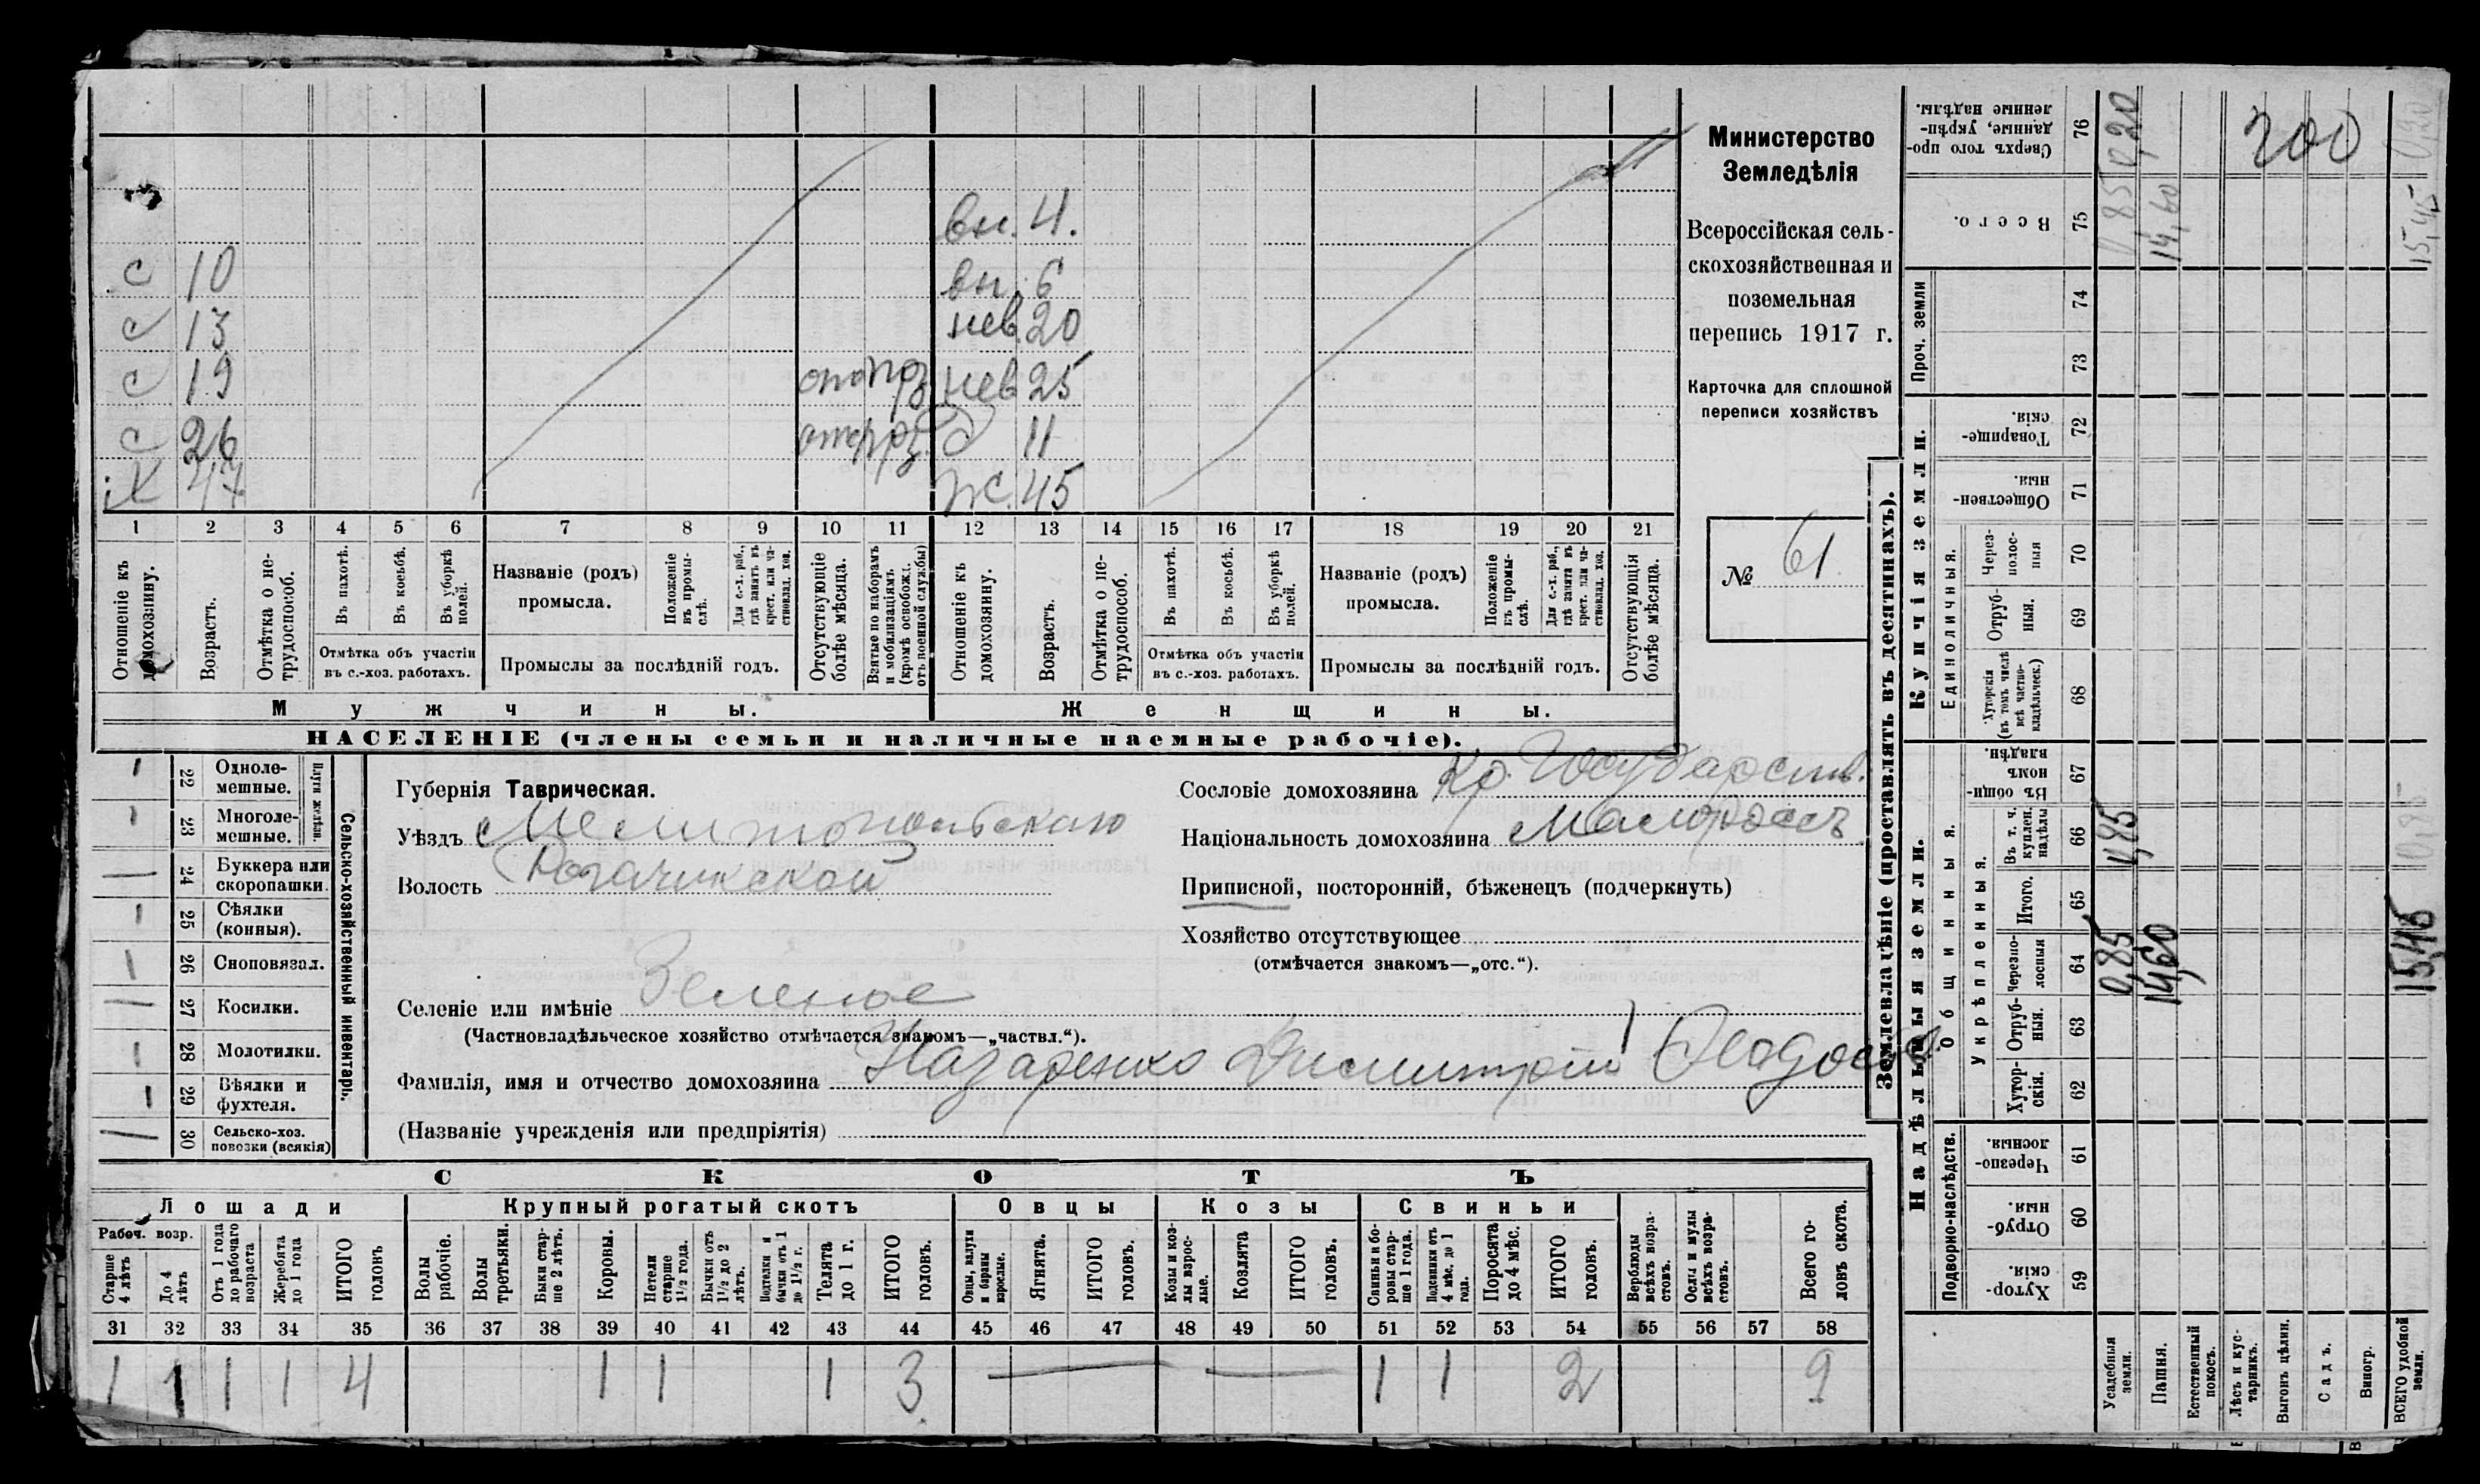 Министерство
Земледѣлія
Всероссійская сель-
скохозяйственная и
поземельная
перепись 1917 г.
Карточка для сплошной
переписи хозяйствъ
№ 61
вн. 4.
с 10 вн. 6
с 13 нев. 20
с 19 нев 25
с 26 д 11
Х 47 ж. 45
1 2 3 4 5 6 7 8 9 10 11 12 13 14 15 16 17 18 19 20 21
Отношеніе къ домохозяину.
Возрастъ.
Отмѣтка о не-трудоспособ.
Въ пахотѣ.
Въ косьбѣ.
Въ уборкѣ полей.
Отмѣтка объ участіи
въ с.-хоз. работахъ.
Названіе (родъ)
промысла.
Положеніе въ промы-слѣ.
Для с.-х. раб., гдѣ занятъ въ крест. или ча-стновлад. хоз.
Промыслы за послѣдній годъ.
Отсутствующіе болѣе мѣсяца.
Взятые по наборамъ и мобилизаціямъ (кромѣ освобожд. отъ военной службы)
Отношеніе къ домохозяину.
Возрастъ.
Отмѣтка о не-трудоспособ.
Въ пахотѣ.
Въ косьбѣ.
Въ уборкѣ полей.
Отмѣтка объ участіи
въ с.-хоз. работахъ.
Названіе (родъ)
промысла.
Положеніе въ промы-слѣ.
Для с.-х. раб., гдѣ занята въ крест. или ча-стновлад. хоз.
Промыслы за послѣдній годъ.
Отсутствующія болѣе мѣсяца.
Мужчины. Женщины.
НАСЕЛЕНІЕ (члены семьи и наличные наемные рабочіе).
Сельско-хозяйственный инвентарь.
Плуги желѣзн.
1 22 Одноле-мешные.
1 23 Многоле-мешные.
— 24 Буккера или скоропашки.
1 25 Сѣялки (конныя).
1 26 Сноповязал.
— 27 Косилки.
1 28 Молотилки.
1 29 Вѣялки и фухтеля.
— 30 Сельско-хоз. повозки (всякія)
Губернія Таврическая.
Уѣздъ Мелитопольскаго
Волость Рогачикской
Сословіе домохозяина Кр. Государств.
Національность домохозяина Малороссъ
Приписной, посторонній, бѣженецъ (подчеркнуть)
Хозяйство отсутствующее
(отмѣчается знакомъ—„отс.“).
Селеніе или имѣніе Зеленое
(Частновладѣльческое хозяйство отмѣчается знакомъ—„частвл.“).
Фамилія, имя и отчество домохозяина Назаренко Димитрій
(Названіе учрежденія или предпріятія)
СКОТЪ
Лошади Крупный рогатый скотъ Овцы Козы Свиньи
Рабоч. возр.
Старше 4 лѣтъ
До 4 лѣтъ
Отъ 1 года до рабочаго возраста
Жеребята до 1 года
ИТОГО головъ
Волы рабочіе.
Волы третьяки.
Быки стар-ше 2 лѣтъ.
Коровы.
Нетели старше 1½ года.
Бычки отъ 1½ до 2 лѣтъ.
Подтелки и бычки отъ 1 до 1½ г.
Телята до 1 г.
ИТОГО головъ.
Овцы, валухи и бараны взрослые.
Ягнята.
ИТОГО головъ.
Козы и коз-лы взрос-лые.
Козлята
ИТОГО головъ.
Свиньи и бо-ровы стар-ше 1 года.
Подсвинки отъ 4 мѣс. до 1 года.
Поросята до 4 мѣс.
ИТОГО головъ.
Верблюды всѣхъ возра-стовъ.
Ослы и мулы всѣхъ возра-стовъ.
Всего го-ловъ скота.
31 32 33 34 35 36 37 38 39 40 41 42 43 44 45 46 47 48 49 50 51 52 53 54 55 56 57 58
1 1 1 1 4 1 1 1 3 — — 1 1 2 9
Землевладѣніе (проставлять въ десятинахъ).
Надѣльныя земли. Купчія земли.
Подворно-наслѣдств.
Общинныя.
Укрѣпленныя.
Единоличныя.
Проч. земли
Хутор-скія. 59
Отруб-ныя. 60
Черезпо-лосныя. 61
Хутор-скія. 62
Отруб-ныя. 63
Черезпо-лосныя 64 0,85 14,60 15,45
Итого. 65
Въ т. ч. куплен. надѣлы 66
Въ общи-номъ владѣн. 67
Хуторскія (въ томъ числѣ всѣ частно-владѣльческ.) 68
Отруб-ныя. 69
Через-полос-ныя 70
Обществен-ныя. 71
Товарище-скія. 72
73
74
Всего. 75 0,85 14,60 15,45
Сверхъ того про-данные, укрѣп-ленные надѣлы. 76 0,20 200 0,20
Усадебныя земли.
Пашня.
Естественный покосъ.
Лѣсъ и кус-тарникъ.
Выгонъ цѣлин.
Садъ.
Виногр.
ВСЕГО удобной земли.